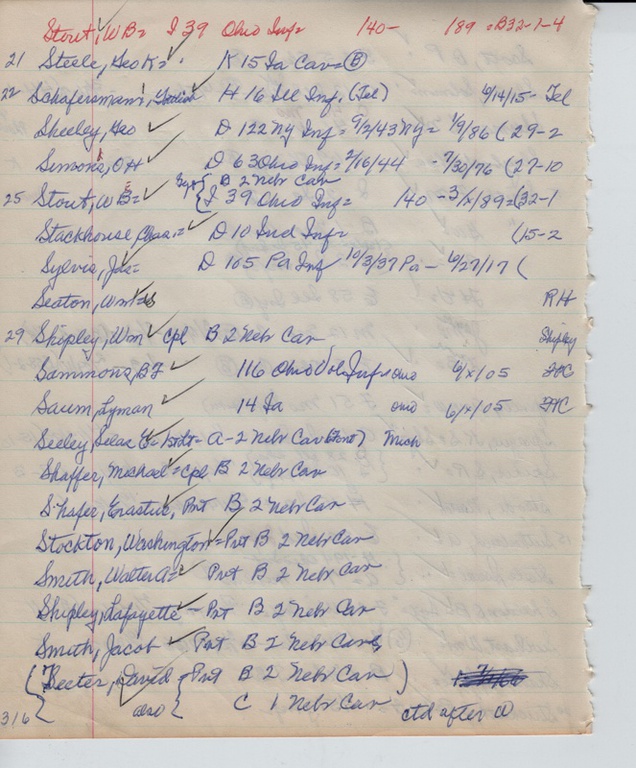 Stout, WB= I 39 Ohio Inf= /40- /89 = B32-1-4
21 Steele, Geo K= K 15 Ia Cav= B
22 Schafersman, H 16 Ill Inf. (Tel) 6/14/15- Tel
Sheeley, Geo D 122 NY Inf= 9/2/43 NY= 1/9/86 (29-2
Simons, OH D 63 Ohio Inf= 2/16/44 - 7/30/76 (27-10
B 2 Nebr Cav
25 Stout, WB= { I 39 Ohio Inf= /40 - 3/x/89=(32-1
Stackhouse, Chas.= D 10 Ind Inf= (15-2
Sylvis, Jas= D 105 Pa Inf 10/3/37 Pa - 6/27/17 (
Seaton, Wm RH
29 Shipley, Wm Cpl B 2 Nebr Cav Shipley
Sammons, BF 116 Ohio Vol Inf= omo 6/x/05
Saum, Lyman 14 Ia omo 6/x/05
Seeley, Silas A-2 Nebr Cav Mich
Shaffer, Michael= Cpl B 2 Nebr Cav
Shafer, Erastus, Pvt B 2 Nebr Cav
Stockton, Washington= Pvt B 2 Nebr Cav
Smith, Walter A= Pvt B 2 Nebr Cav
Shipley, Lafayette - Pvt B 2 Nebr Cav
Smith, Jacob Pvt B 2 Nebr Cav
( Teeter, David = { Pvt B 2 Nebr Cav )
316 { also { C 1 Nebr Cav ctd after W